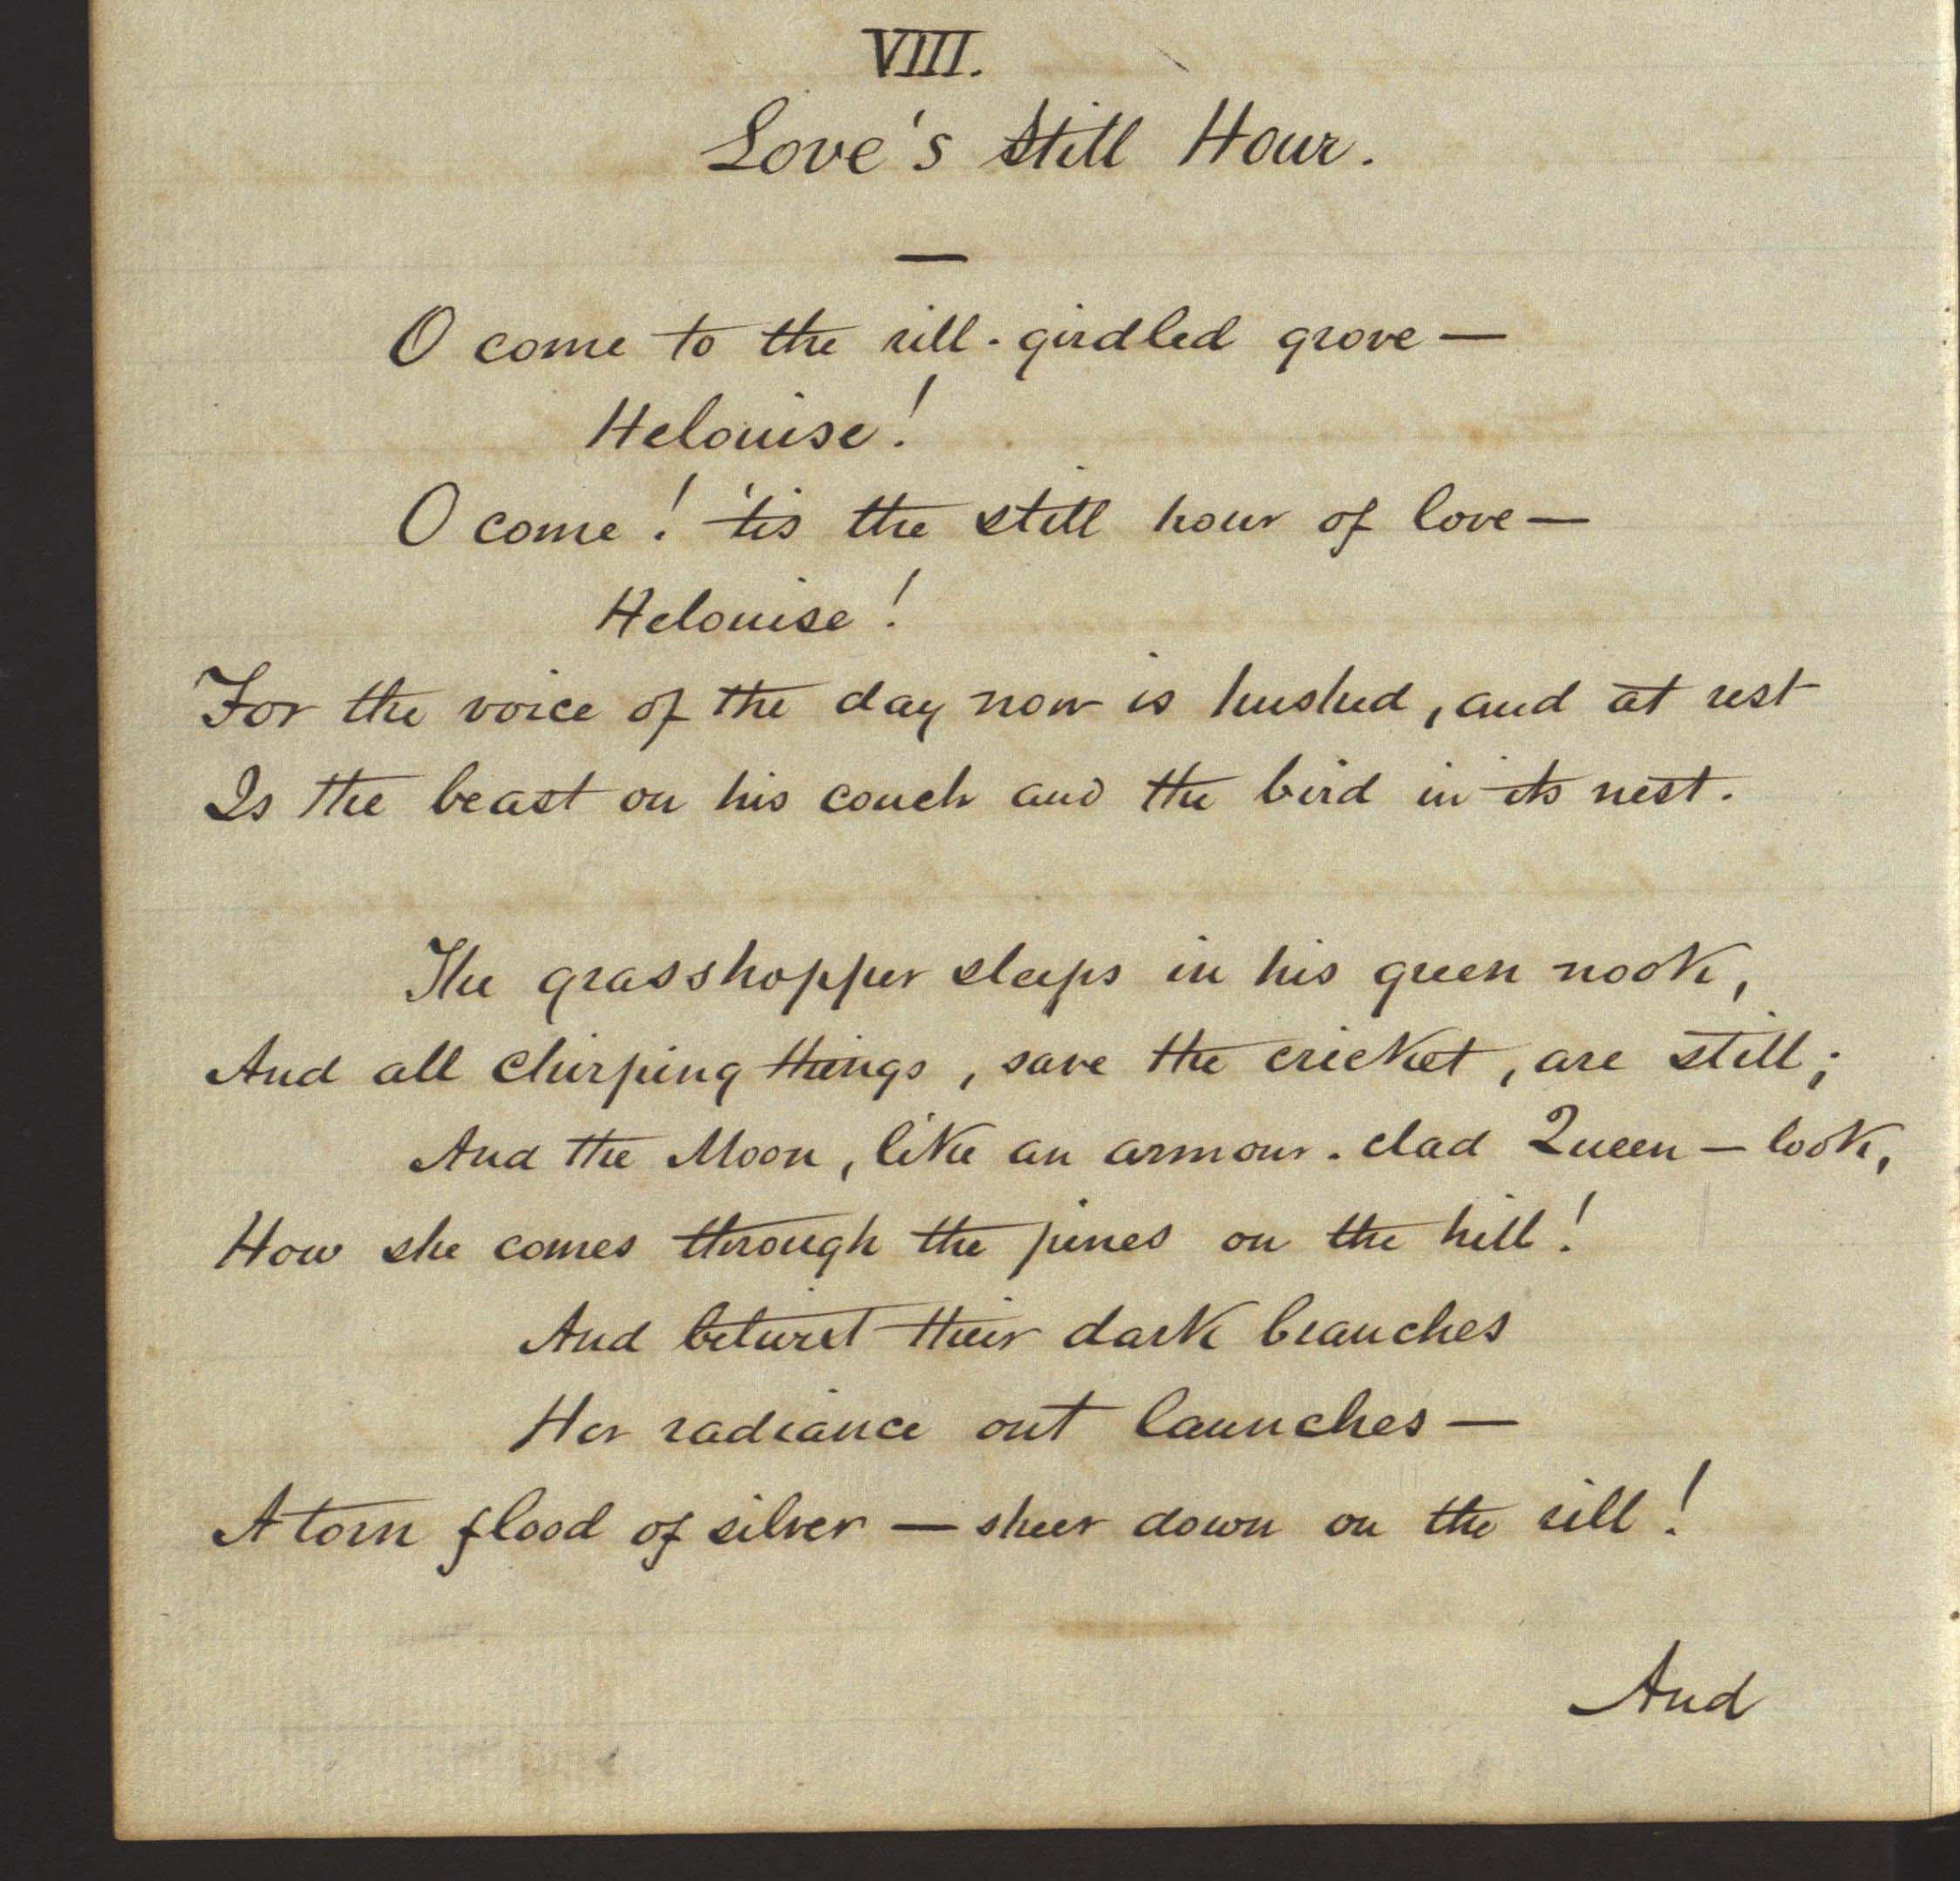 VIII.
Love's Still Hour.
—
O come to the rill-girdled grove —
Helouise!
O come! 'tis the still hour of love —
Helouise!
For the voice of the day now is hushed, and at rest
Is the beast on his couch and the bird in its nest.
The grasshopper sleeps in his green nook,
And all chirping things, save the cricket, are still;
And the Moon, like an armour-clad Queen — look,
How she comes through the pines on the hill!
And betwixt their dark branches
Her radiance out launches —
A torn flood of silver — sheer down on the rill!
And